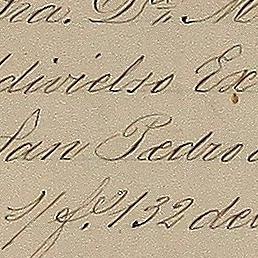 ña. Dña. M
ldivielso Ex
San Pedro d
1/f.º 132 del